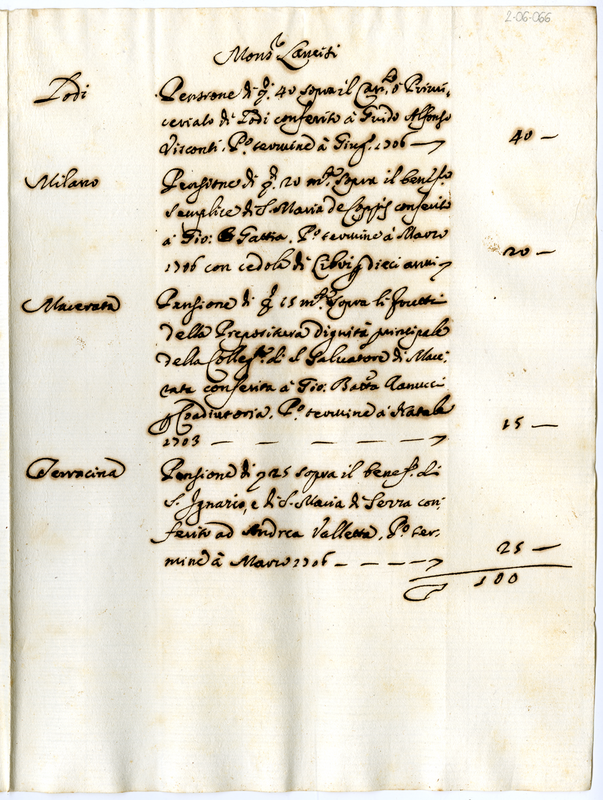 2-06-066
Mons.r Lancisi
Todi Pensione di ∇. 40 sopra il Can.to ò Primi,
ceriato di Todi conferito à Guido Alfonso
Visconti. P.o termine à Giug.o 1706 — 40 —
Milano Pensione di ∇. 20 m.ta sopra il benef.o
semplice di S. Maria de conferito
à Gio: Gattia. P.o termine à Marzo
1706 con cedola di dieci anni 20 —
Macerata Pensione di ∇ 15 m.ta sopra li frutti
della Prepositura dignità principale
della Colleg.ta di S. Salvatore di Mace,
rata conferita à Gio: Batta Vanucci
Coadiutoria. P.o termine à Natale
1703 — — — — — 15 —
Terracina Pensione di ∇ 25 sopra il benef.o di
S. Ignazio, e di S. Maria di Serra con,
ferito ad Andrea Valletta. P.o ter,
mine à Marzo 1706 — — — — 25 —
100